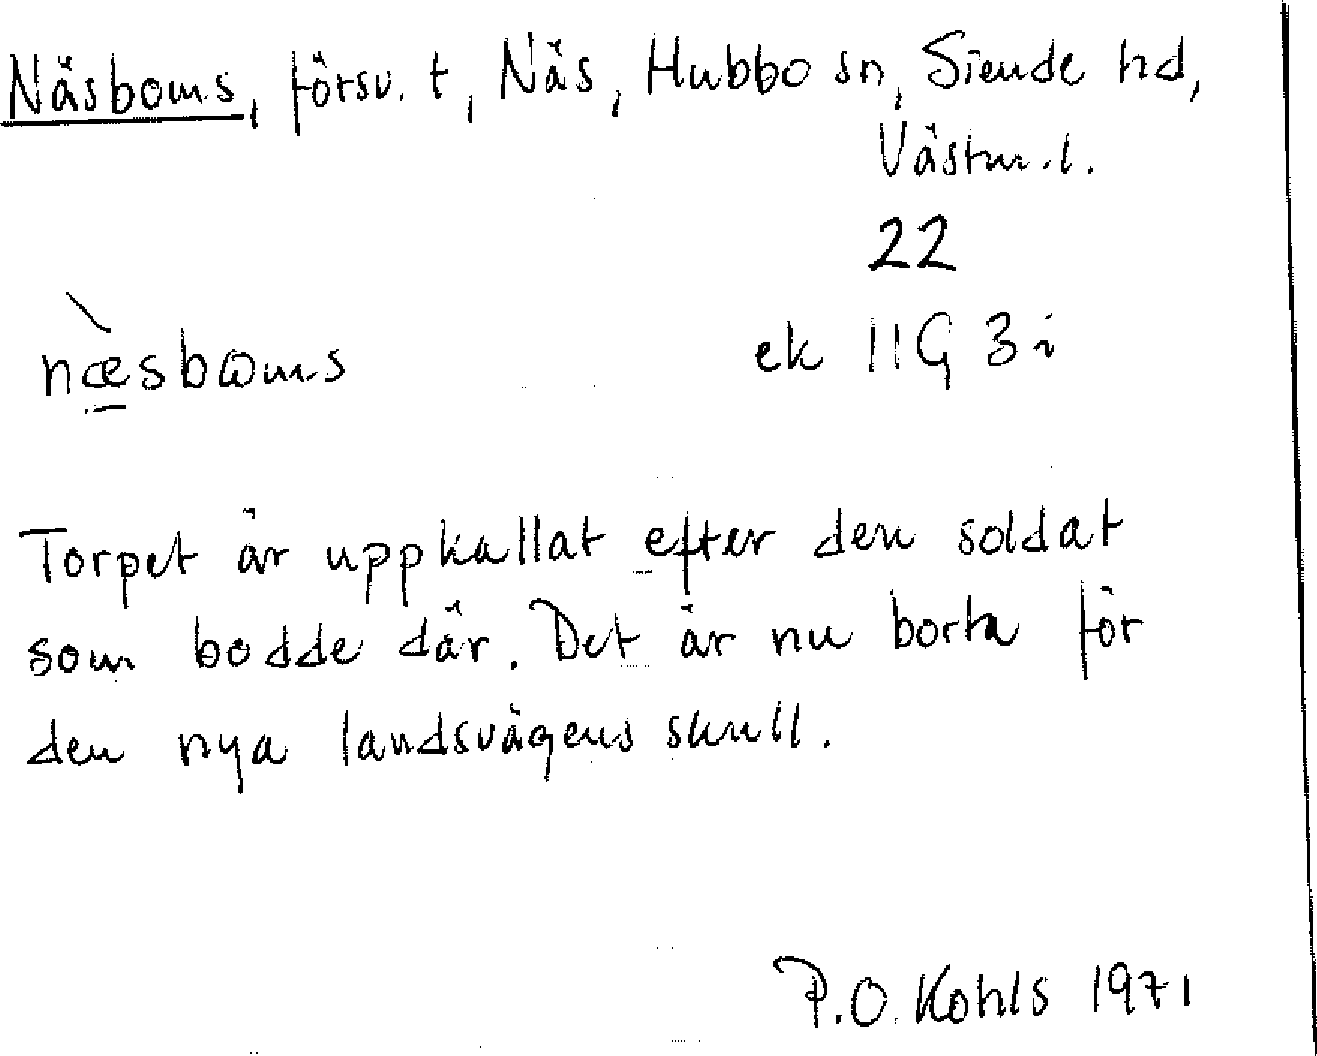 Näsboms, försv. t, Näs, Hubbo sn, Siende hd,
Västm.l.
22
næ̀sbɷms
ek 11G 3i
Torpet är uppkallat efter den soldat
som bodde där. Det är nu borta för
den nya landsvägens skull.
P.O. Kohls 1971